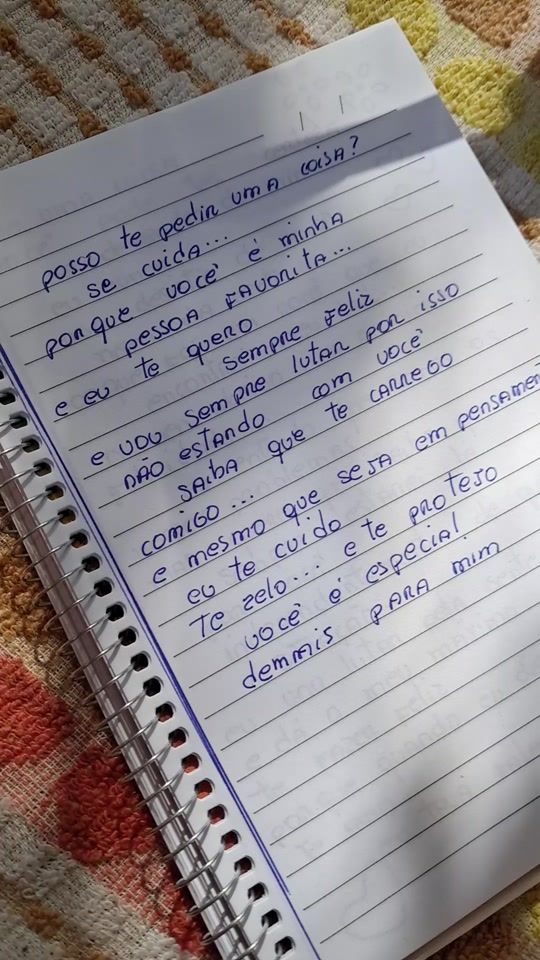 posso te pedir uma coisa?
se cuida...
porque você é minha
pessoa favorita...
e eu te quero
sempre feliz
e vou sempre lutar por isso
não estando com você
saiba que te carrego
comigo...
e mesmo que seja em pensamen
eu te cuido
te zelo... e te protejo
você é especial
demmais para mim